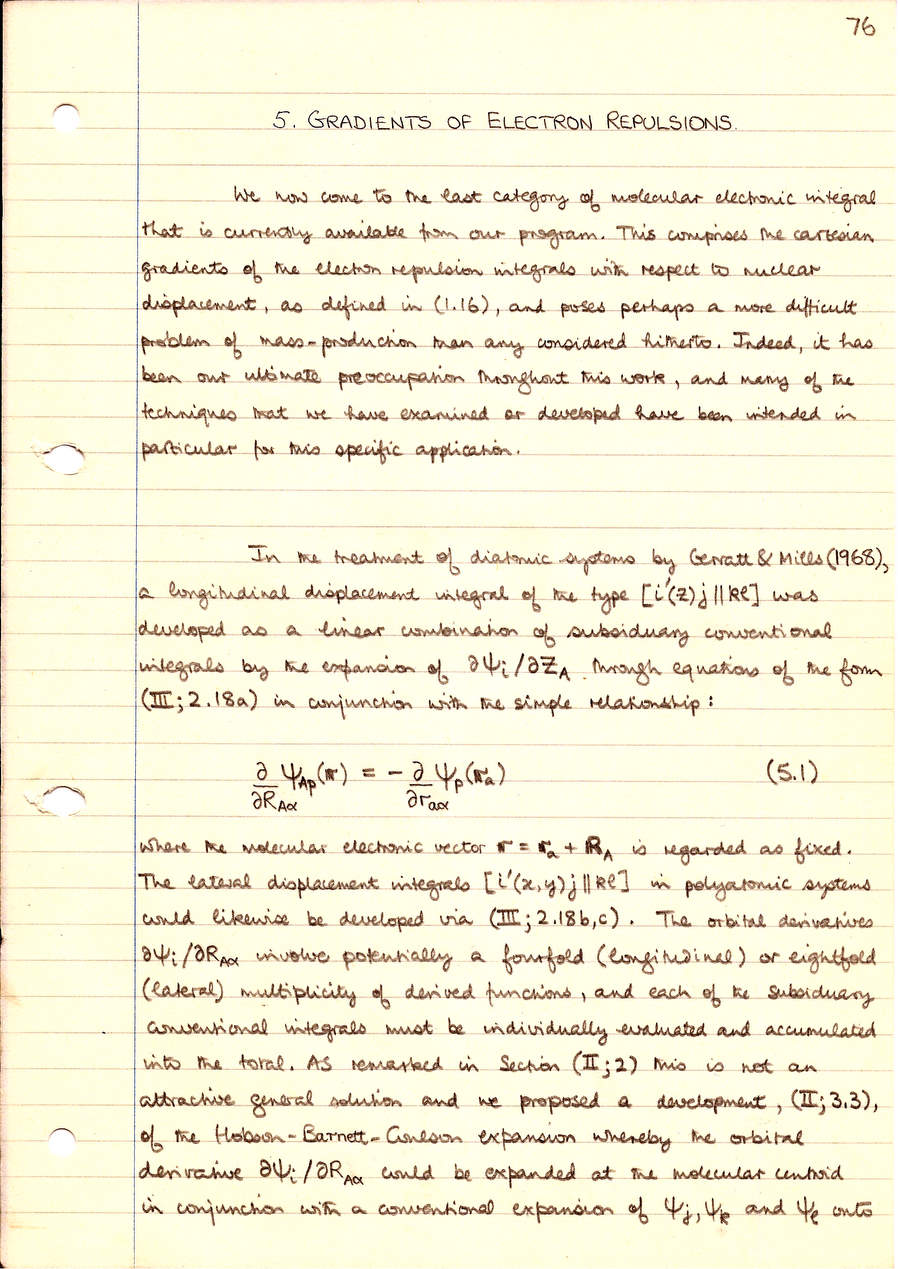 76
5. GRADIENTS OF ELECTRON REPULSIONS.
We now come to the last category of molecular electronic integral
that is currently available from our program. This comprises the cartesian
gradients of the electron repulsion integrals with respect to nuclear
displacement, as defined in (1.16), and poses perhaps a more difficult
problem of mass-production than any considered hitherto. Indeed, it has
been our ultimate preoccupation throughout this work, and many of the
techniques that we have examined or developed have been intended in
particular for this specific application.
In the treatment of diatomic systems by Gerratt & Mills (1968),
a longitudinal displacement integral of the type [i′(z)j||kℓ] was
developed as a linear combination of subsiduary conventional
integrals by the expansion of ∂Ψi/∂ZA through equations of the form
(III; 2.18a) in conjunction with the simple relationship:
∂/∂RAα ΨAp(r) = - ∂/∂raα Ψp(ra) (5.1)
where the molecular electronic vector r = ra + RA is regarded as fixed.
The lateral displacement integrals [i′(x,y)j||kℓ] in polyatomic systems
could likewise be developed via (III; 2.18b,c). The orbital derivatives
∂Ψi/∂RAα involve potentially a fourfold (longitudinal) or eightfold
(lateral) multiplicity of derived functions, and each of the subsiduary
conventional integrals must be individually evaluated and accumulated
into the total. AS remarked in Section (II; 2) this is not an
attractive general solution and we proposed a development, (II; 3.3),
of the Hobson-Barnett-Coulson expansion whereby the orbital
derivative ∂Ψi/∂RAα could be expanded at the molecular centroid
in conjunction with a conventional expansion of Ψj, Ψk and Ψℓ onto